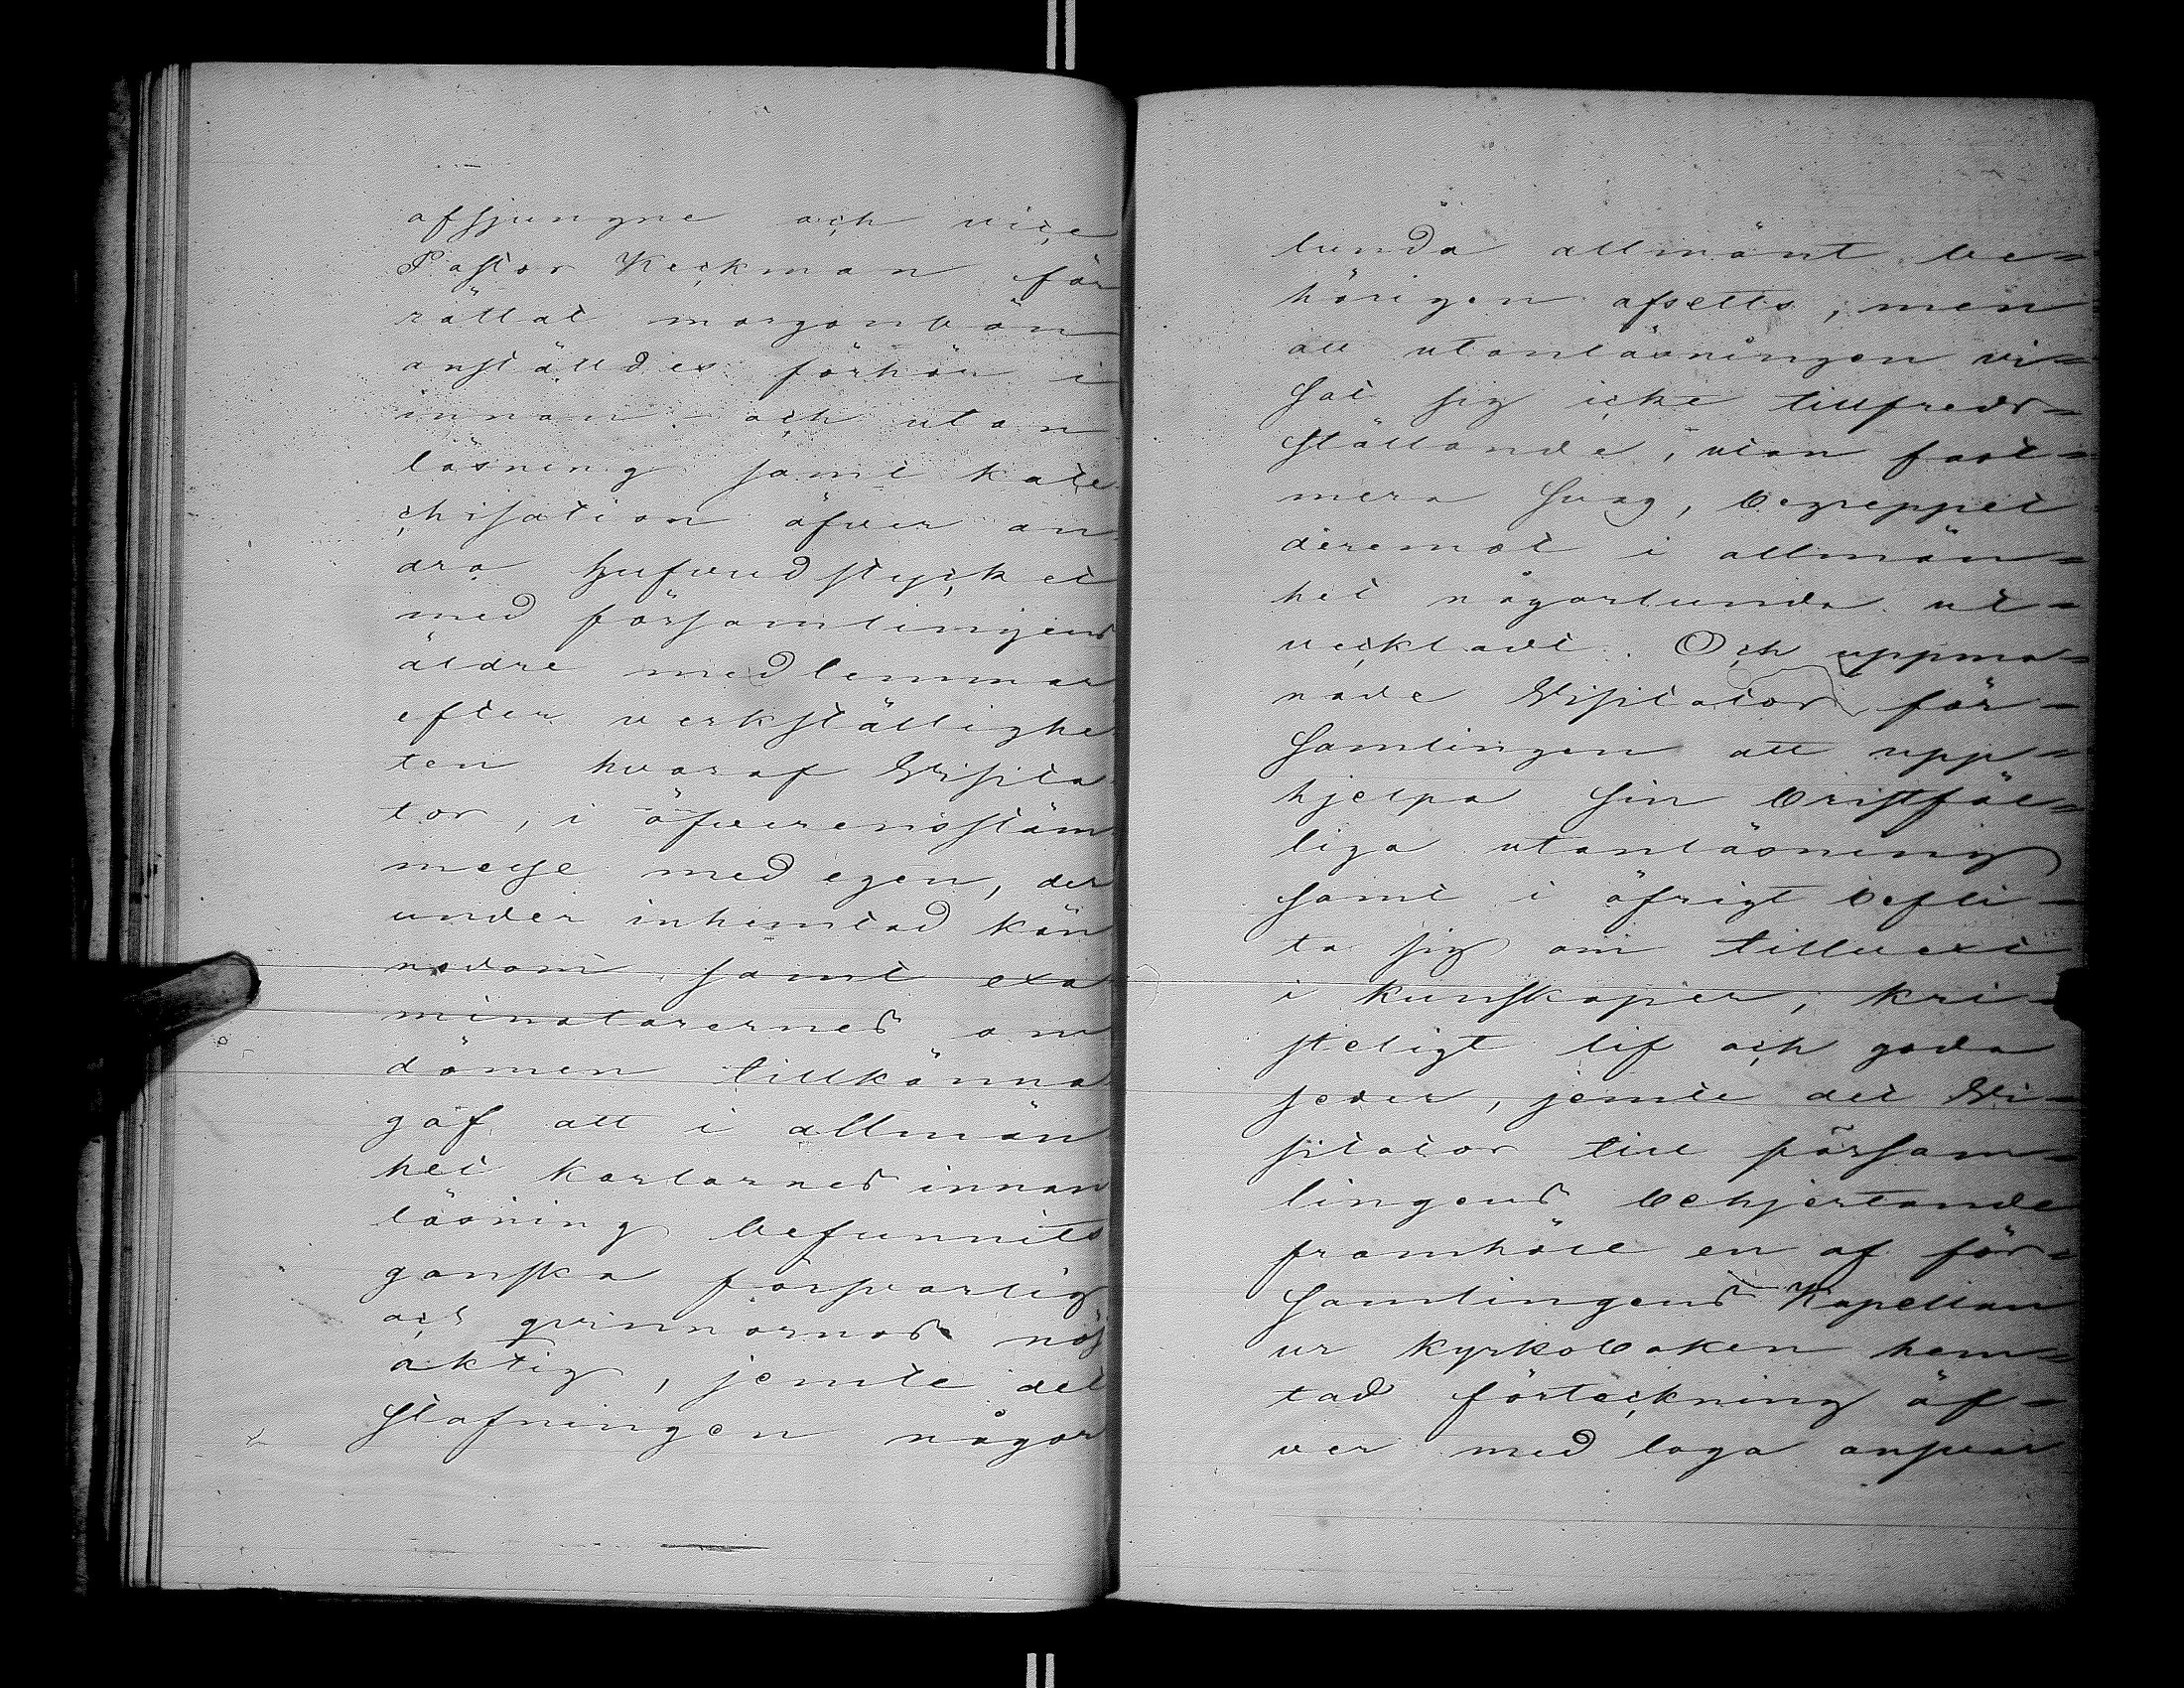 afsjungne och vice
Pastor Keckman för
rättat morgonbön
anställdes förhör i
innan- och utan
läsning samt kate
chisation öfver an
dra Hufvudstycket
med församlingens
äldre medlemmar
efter verkställighe
ten hvaraf Visita
tor, i öfverensstäm
melse med egen, der
under inhemtad kän
nedom samt exa
minatorernes om
dömen tillkänna
gaf att i allmän
het karlarnes innan
läsning befunnits
ganska försvarlig
och qvinnornas nöj
aktig, jemte det
stafningen någor
lunda allmänt be-
hörigen afsetts, men
att utanläsningen vi-
sat sig icke tillfreds-
ställande, utan fast-
mera svag, begreppet
deremot i allmän-
het någorlunda ut-
veckladt. Och uppma-
nade Visitator för-
samlingen att upp-
hjelpa sin bristfäl-
liga utanläsning
samt i öfrigt befli-
ta sig om tillvext
i kunskaper, kri-
steligt lif och goda
seder, jemte det Vi-
sitator till försam-
lingens behjertande
framhöll en af för-
samlingens Kapellan
ur kyrkoboken hem-
tad förteckning öf-
ver med laga ansvar